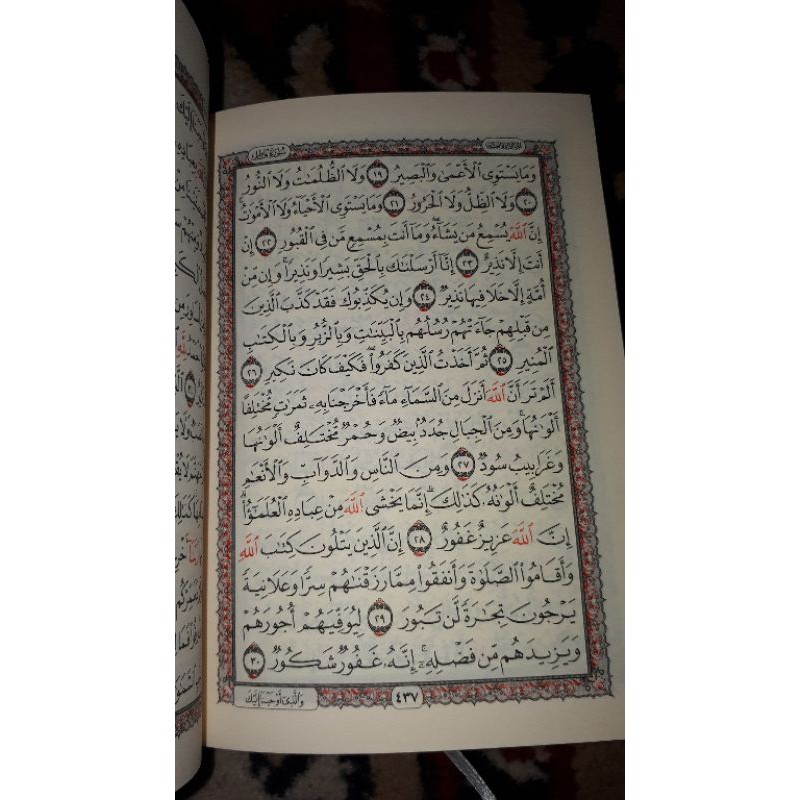 سُورَةُ فَاطِرٍ
وَمَا يَسْتَوِى ٱلْأَعْمَىٰ وَٱلْبَصِيرُ ١٩ وَلَا ٱلظُّلُمَٰتُ وَلَا ٱلنُّورُ
٢٠ وَلَا ٱلظِّلُّ وَلَا ٱلْحَرُورُ ٢١ وَمَا يَسْتَوِى ٱلْأَحْيَآءُ وَلَا ٱلْأَمْوَٰتُ ۚ
إِنَّ ٱللَّهَ يُسْمِعُ مَن يَشَآءُ ۖ وَمَآ أَنتَ بِمُسْمِعٍ مَّن فِى ٱلْقُبُورِ ٢٢ إِنْ
أَنتَ إِلَّا نَذِيرٌ ٢٣ إِنَّآ أَرْسَلْنَٰكَ بِٱلْحَقِّ بَشِيرًا وَنَذِيرًا ۚ وَإِن مِّنْ
أُمَّةٍ إِلَّا خَلَا فِيهَا نَذِيرٌ ٢٤ وَإِن يُكَذِّبُوكَ فَقَدْ كَذَّبَ ٱلَّذِينَ
مِن قَبْلِهِمْ جَآءَتْهُمْ رُسُلُهُم بِٱلْبَيِّنَٰتِ وَبِٱلزُّبُرِ وَبِٱلْكِتَٰبِ
ٱلْمُنِيرِ ٢٥ ثُمَّ أَخَذْتُ ٱلَّذِينَ كَفَرُوا۟ ۖ فَكَيْفَ كَانَ نَكِيرِ ٢٦
أَلَمْ تَرَ أَنَّ ٱللَّهَ أَنزَلَ مِنَ ٱلسَّمَآءِ مَآءً فَأَخْرَجْنَا بِهِۦ ثَمَرَٰتٍ مُّخْتَلِفًا
أَلْوَٰنُهَا ۚ وَمِنَ ٱلْجِبَالِ جُدَدٌۢ بِيضٌ وَحُمْرٌ مُّخْتَلِفٌ أَلْوَٰنُهَا
وَغَرَابِيبُ سُودٌ ٢٧ وَمِنَ ٱلنَّاسِ وَٱلدَّوَآبِّ وَٱلْأَنْعَٰمِ
مُخْتَلِفٌ أَلْوَٰنُهُۥ كَذَٰلِكَ ۗ إِنَّمَا يَخْشَى ٱللَّهَ مِنْ عِبَادِهِ ٱلْعُلَمَٰٓؤُا۟ ۗ
إِنَّ ٱللَّهَ عَزِيزٌ غَفُورٌ ٢٨ إِنَّ ٱلَّذِينَ يَتْلُونَ كِتَٰبَ ٱللَّهِ
وَأَقَامُوا۟ ٱلصَّلَوٰةَ وَأَنفَقُوا۟ مِمَّا رَزَقْنَٰهُمْ سِرًّا وَعَلَانِيَةً
يَرْجُونَ تِجَٰرَةً لَّن تَبُورَ ٢٩ لِيُوَفِّيَهُمْ أُجُورَهُمْ
وَيَزِيدَهُم مِّن فَضْلِهِۦٓ ۚ إِنَّهُۥ غَفُورٌ شَكُورٌ ٣٠
٤٣٧
وَٱلَّذِىٓ أَوْحَيْنَآ إِلَيْكَ